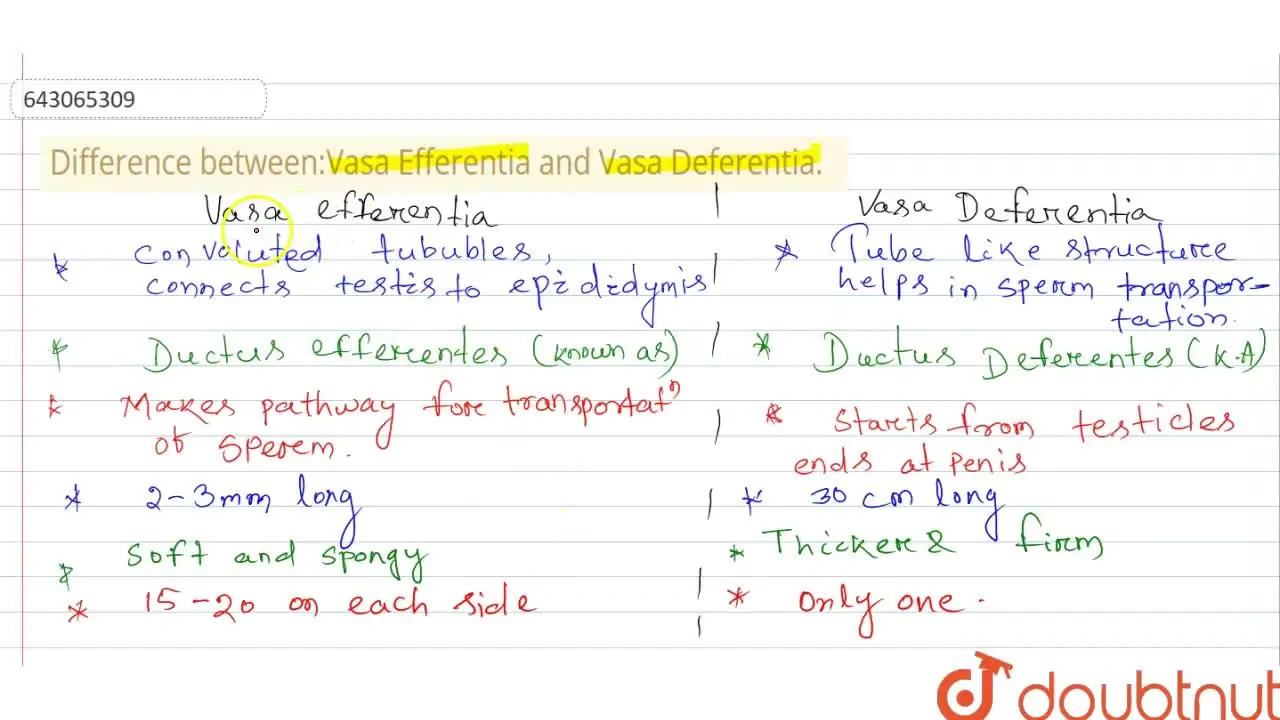 643065309
Difference between:Vasa Efferentia and Vasa Deferentia.
Vasa efferentia
Vasa Deferentia
* convoluted tububles,
connects testis to epididymis
* Tube like structure
helps in sperm transpor-
tation.
* Ductus efferentes (known as)
* Ductus Deferentes (K.A)
* Makes pathway for transportatn
of sperm.
* Starts from testicles
ends at penis
* 2-3mm long
* 30 cm long
* Soft and spongy
* Thicker & firm
* 15-20 on each side
* Only one.
doubtnut